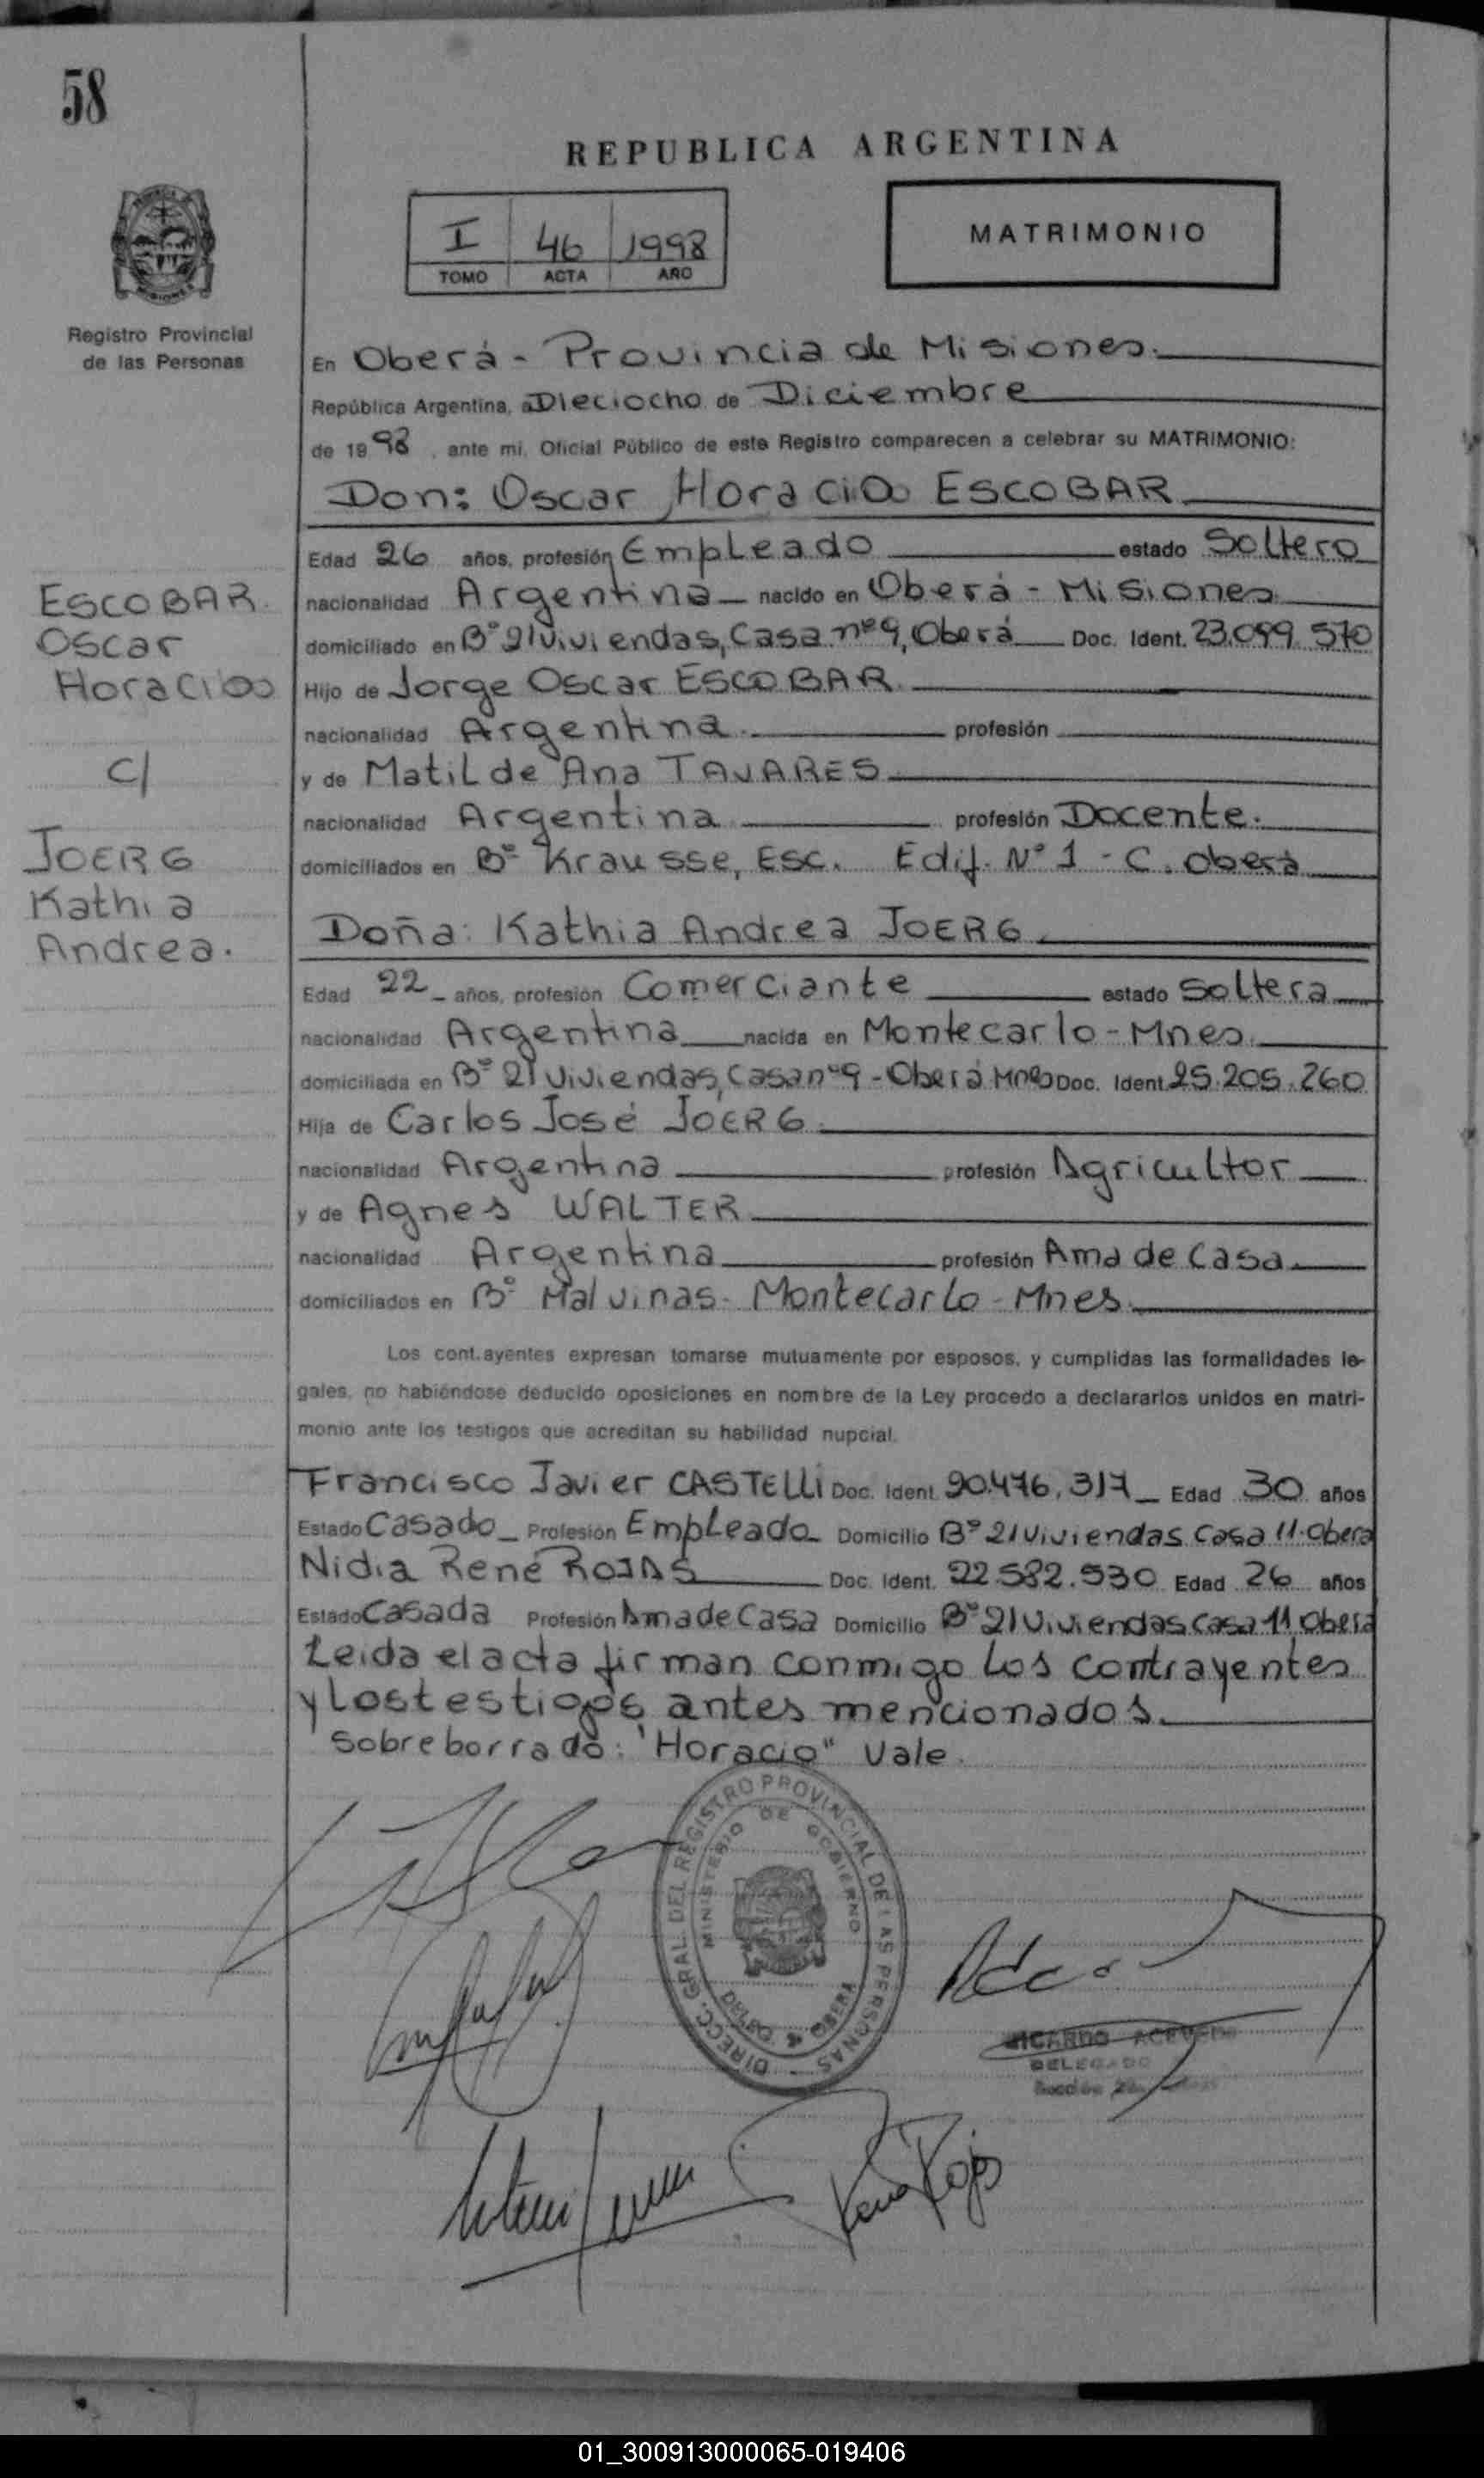 58
REPUBLICA ARGENTINA
I 46 1998
TOMO ACTA AÑO
MATRIMONIO
Registro Provincial
de las Personas
En Oberá - Provincia de Misiones.
República Argentina, a Dieciocho de Diciembre
de 1998, ante mi, Oficial Público de este Registro comparecen a celebrar su MATRIMONIO:
Don: Oscar Horacio ESCOBAR
Edad 26 años, profesión Empleado estado Soltero
nacionalidad Argentina nacido en Oberá - Misiones
domiciliado en B° 21 Viviendas, Casa n° 9, Oberá Doc. Ident. 23.099.570
Hijo de Jorge Oscar ESCOBAR
nacionalidad Argentina. profesión
y de Matilde Ana TAVARES
nacionalidad Argentina profesión Docente.
domiciliados en B° Krausse, Esc. Edif. N° 1 - C. Oberá
ESCOBAR.
Oscar
Horacio
C/
JOERG
Kathia
Andrea.
Doña: Kathia Andrea JOERG
Edad 22 años, profesión Comerciante estado Soltera
nacionalidad Argentina nacida en Montecarlo - Mnes.
domiciliada en B° 21 Viviendas, Casa n° 9 - Oberá Mnes Doc. Ident. 25.205.260
Hija de Carlos José JOERG
nacionalidad Argentina profesión Agricultor
y de Agnes WALTER
nacionalidad Argentina profesión Ama de Casa
domiciliados en B° Malvinas - Montecarlo - Mnes.
Los cont.ayentes expresan tomarse mutuamente por esposos, y cumplidas las formalidades le-
gales, no habiéndose deducido oposiciones en nombre de la Ley procedo a declararlos unidos en matri-
monio ante los testigos que acreditan su habilidad nupcial.
Francisco Javier CASTELLI Doc. Ident. 90.476.317 Edad 30 años
Estado Casado Profesión Empleado Domicilio B° 21 Viviendas Casa 11. Oberá
Nidia René ROJAS Doc. Ident. 22.582.530 Edad 26 años
Estado Casada Profesión Ama de Casa Domicilio B° 21 Viviendas Casa 11 Oberá
Leida el acta firman conmigo los contrayentes
y los testigos antes mencionados.
Sobreborrado: "Horacio" Vale.
DIRECC. GRAL. DEL REGISTRO PROVINCIAL DE LAS PERSONAS
MINISTERIO DE GOBIERNO
OBERA
RICARDO ACEVEDO
DELEGADO
Rojas
01_300913000065-019406